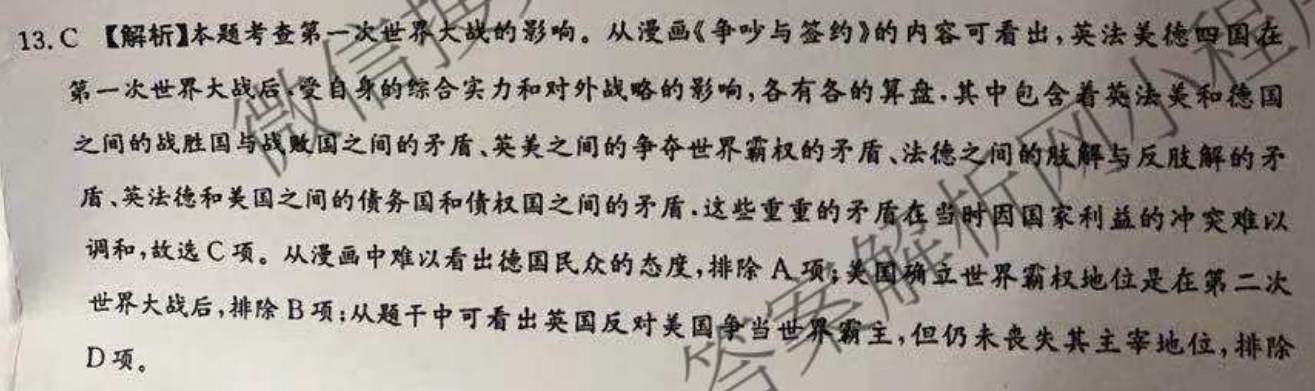 13. C 【解析】本题考查第一次世界大战的影响。从漫画《争吵与签约》的内容可看出,英法美德四国在
第一次世界大战后,受自身的综合实力和对外战略的影响,各有各的算盘,其中包含着英法美和德国
之间的战胜国与战败国之间的矛盾、英美之间的争夺世界霸权的矛盾、法德之间的肢解与反肢解的矛
盾、英法德和美国之间的债务国和债权国之间的矛盾,这些重重的矛盾在当时因国家利益的冲突难以
调和,故选 C 项。从漫画中难以看出德国民众的态度,排除 A 项;美国确立世界霸权地位是在第二次
世界大战后,排除 B 项;从题干中可看出英国反对美国争当世界霸主,但仍未丧失其主宰地位,排除
D 项。
微信搜
答案解析网小程